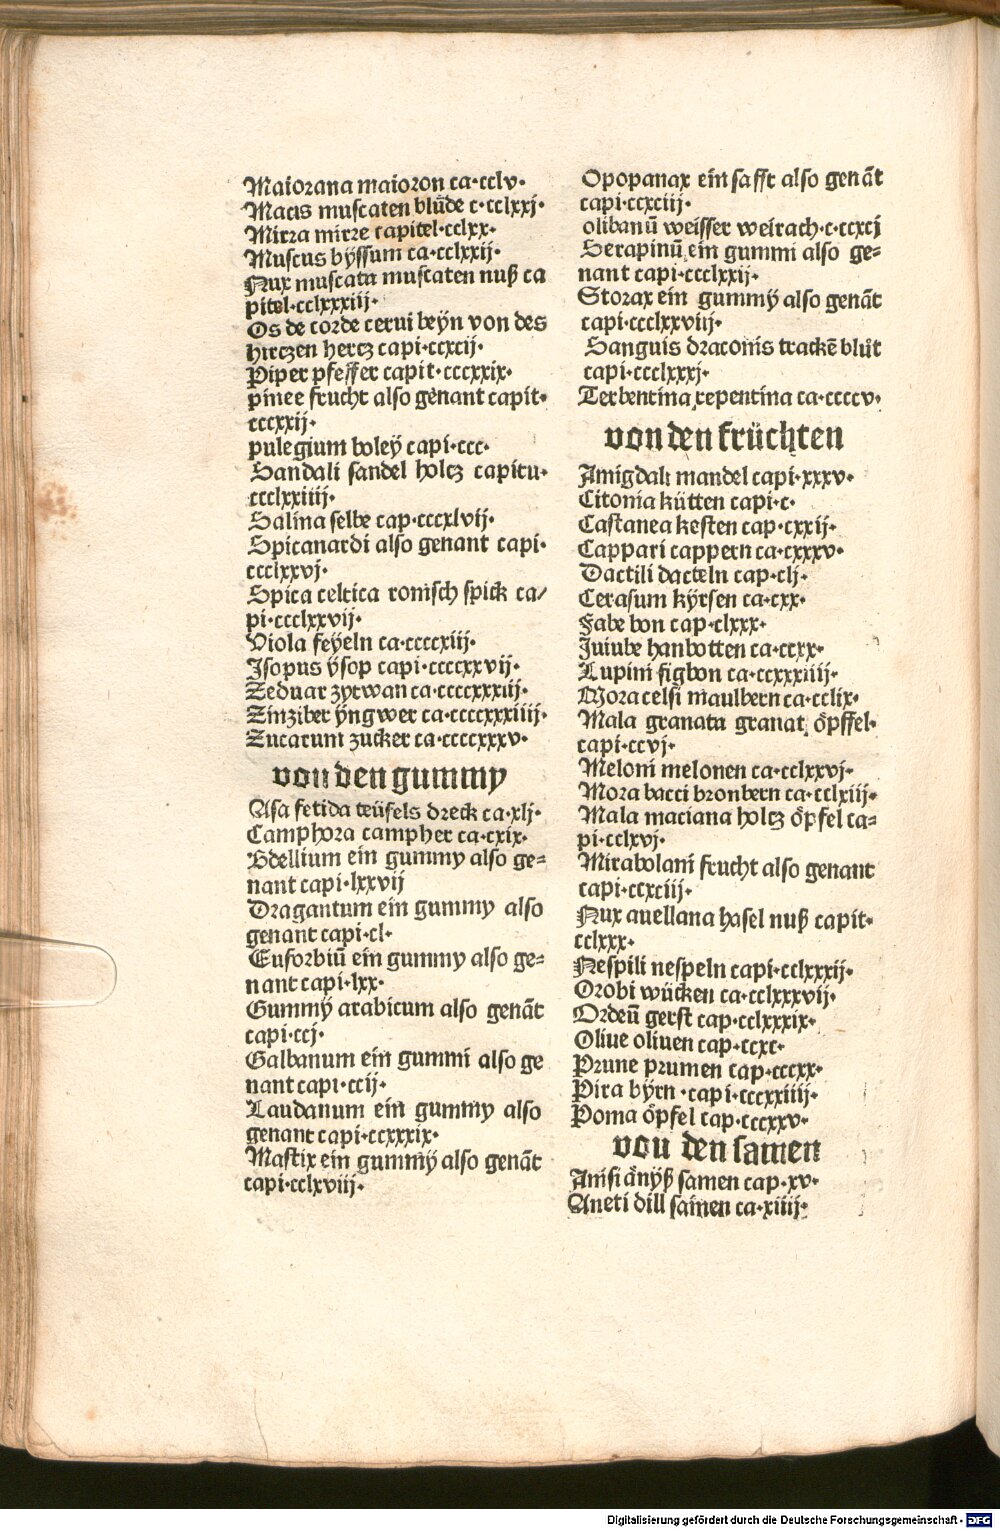 Maiorana maioron ca·cclv·
Macis muscaten blüde c·cclxxj·
Mirra mirre capitel·cclxx·
Muscus bÿssum ca·cclxxij·
Nux muscata muscaten nuß ca
pitel·cclxxxiij·
Os de corde cerui beÿn von des
hirczen hercz capi·ccxcij·
Piper pfeffer capit·cccxxix·
pinee frucht also genant capit·
cccxxij·
pulegium boleÿ capi·ccc·
Sandali sandel holcz capitu·
ccclxxiiij·
Salina selbe cap·cccxlvij·
Spicanardi also genant capi·
ccclxxvj·
Spica celtica romsch spick ca/
pi·ccclxxvij·
Viola feÿeln ca·ccccxiij·
Jsopus ÿsop capi·ccccxxvij·
Zeduar zytwan ca·ccccxxxiij·
Zinziber ÿngwer ca·ccccxxxiiij·
Zucarum zucker ca·ccccxxxv·
von den gummy
Asa fetida teüfels dreck ca·xlj·
Camphora campher ca·cxix·
Bdellium ein gummy also ge=
nant capi·lxxvij
Dragantum ein gummy also
genant capi·cl·
Euforbiū ein gummy also ge=
nant capi·lxx·
Gummÿ arabicum also genāt
capi·ccj·
Galbanum ein gummi also ge
nant capi·ccij·
Laudanum ein gummy also
genant capi·ccxxxix·
Mastix ein gummÿ also genāt
capi·cclxviij·
Opopanax ein safft also genāt
capi·ccxciij·
olibanū weisser weirach·c·ccxcj
Serapinū ein gummi also ge=
nant capi·ccclxxij·
Storax ein gummÿ also genāt
capi·ccclxxviij·
Sanguis draconis trackē blůt
capi·ccclxxxj·
Terbentina repentina ca·ccccv·
von den früchten
Amigdali mandel capi·xxxv·
Citonia kütten capi·c·
Castanea kesten cap·cxxij·
Cappari cappern ca·cxxxv·
Dactili dacteln cap·clj·
Cerasum kÿrsen ca·cxx·
Fabe bon cap·clxxx·
Juiube hanbotten ca·ccxx·
Lupini figbon ca·ccxxxiiij·
Mora celsi maulbern ca·cclix·
Mala granata granat öpffel·
capi·ccvj·
Meloni melonen ca·cclxxvj·
Mora bacci bronbern ca·cclxiij·
Mala maciana holtz öpfel ca=
pi·cclxvj·
Mirabolani frucht also genant
capi·ccxciij·
Nux auellana hasel nuß capit·
cclxxx·
Nespili nespeln capi·cclxxxij·
Orobi wücken ca·cclxxxvij·
Ordeū gerst cap·cclxxxix·
Oliue oliuen cap·ccxc·
Prune prumen cap·cccxx·
Pira bÿrn·capi·cccxxiiij·
Poma öpfel cap·cccxxv·
von den samen
Anisi änÿß samen cap·xv·
Aneti dill samen ca·xiiij·
Digitalisierung gefördert durch die Deutsche Forschungsgemeinschaft - DFG